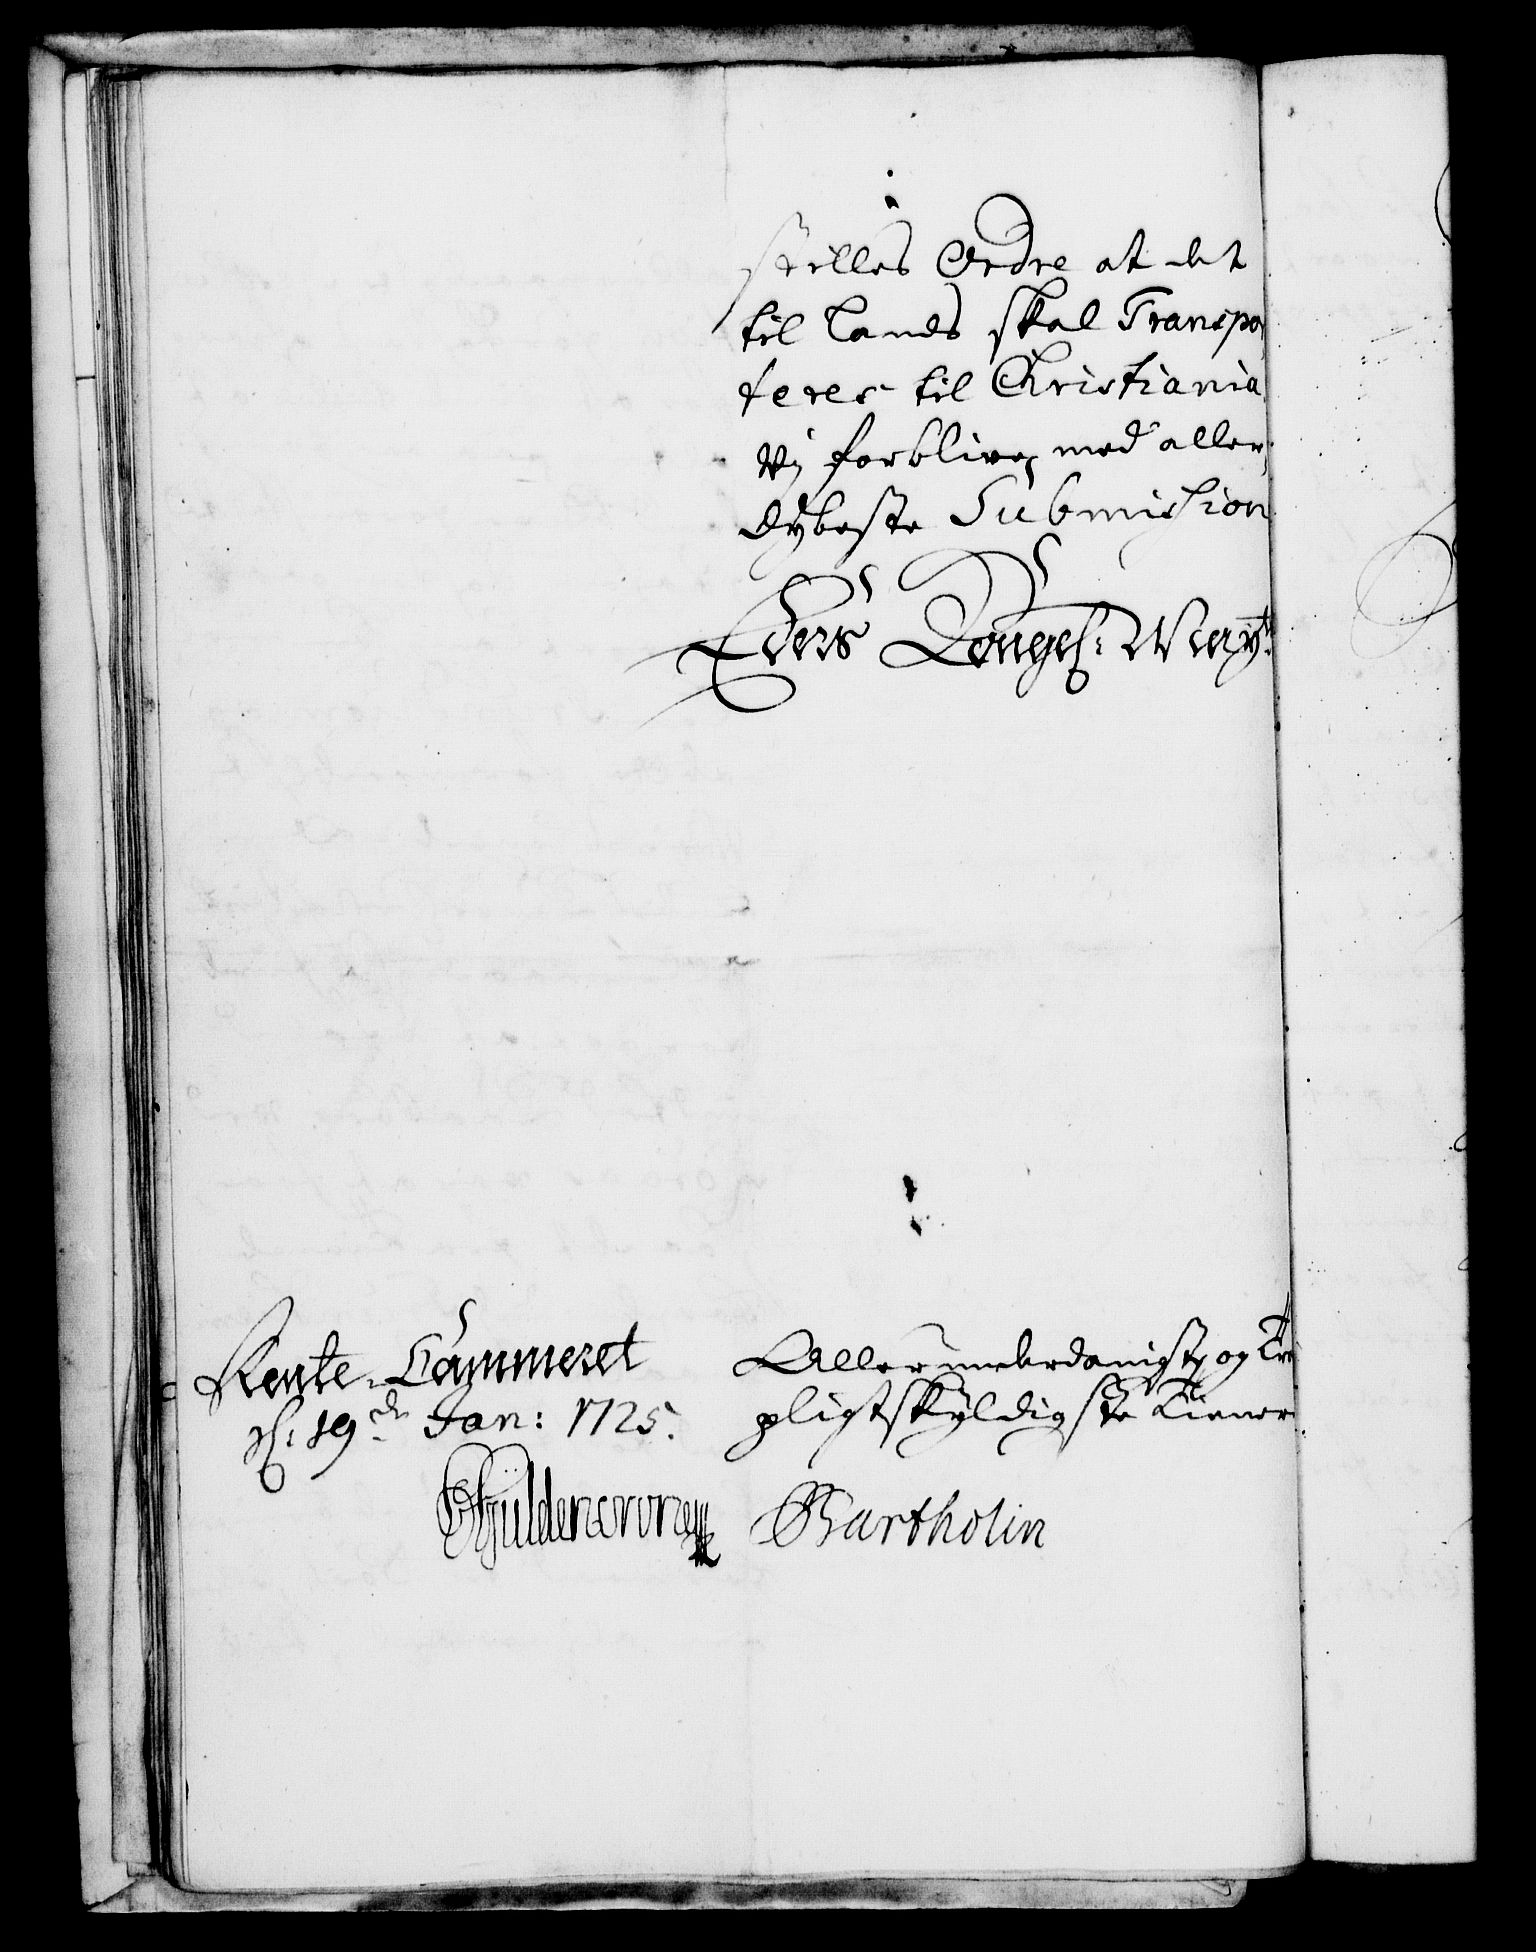 stilles Ordre at det
til Lands skal Transpor
teres til Christiania
Vj forblive med aller,
dybeste Submission
Eders Kongel: Mayts:
Rente-Cammeret
d: 19de Jan: 1725.
Allerunderdanigste og Tro
pligtskyldigste Tienere
Gyldencrone
Bartholin